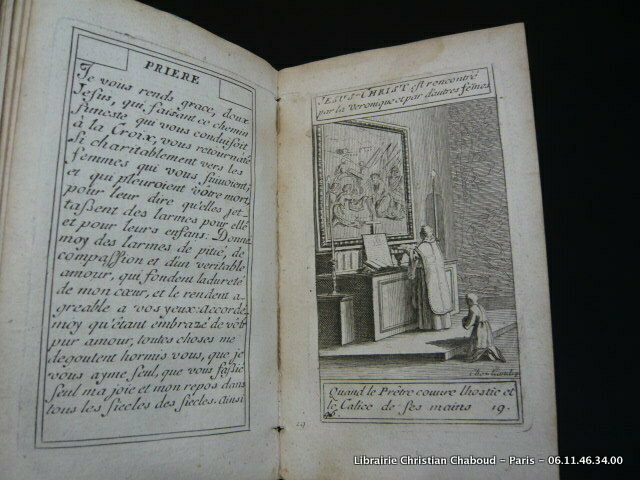 PRIERE
Je vous rends grace, doux
Jesus, qui, faisant ce chemin
funeste qui vous conduisoit
à la Croix, vous retournate
si charitablement vers les
femmes qui vous suivoient,
et qui pleuroient vôtre mort
pour leur dire qu'elles jet-
tassent des larmes pour elle
et pour leurs enfans: Donne
moy des larmes de pitié, de
compassion et d'un veritable
amour, qui fondent la dureté
de mon cœur, et le rendent a-
greable a vos yeux: accordé
moy qu'étant embrazé de vôtr
pur amour, toutes choses me
degoutent hormis vous, que je
vous ayme seul, que vous fassie
seul ma joie et mon repos dans
tous les siecles des siecles. ainsi
JESUS-CHRIST est rencontré
par la Veronique et par d'autres fem̃es
Quand le Prêtre couvre lhostie et
le Calice de ses mains 19.
19
Librairie Christian Chaboud - Paris - 06.11.46.34.00